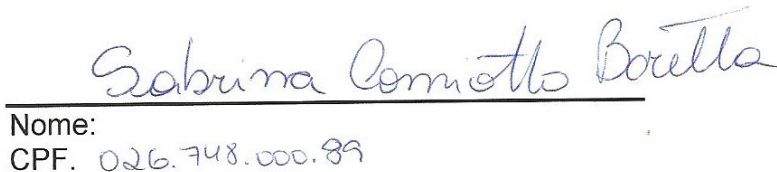 Sabrina Comiotto Boretta
Nome:
CPF. 026.748.000.89